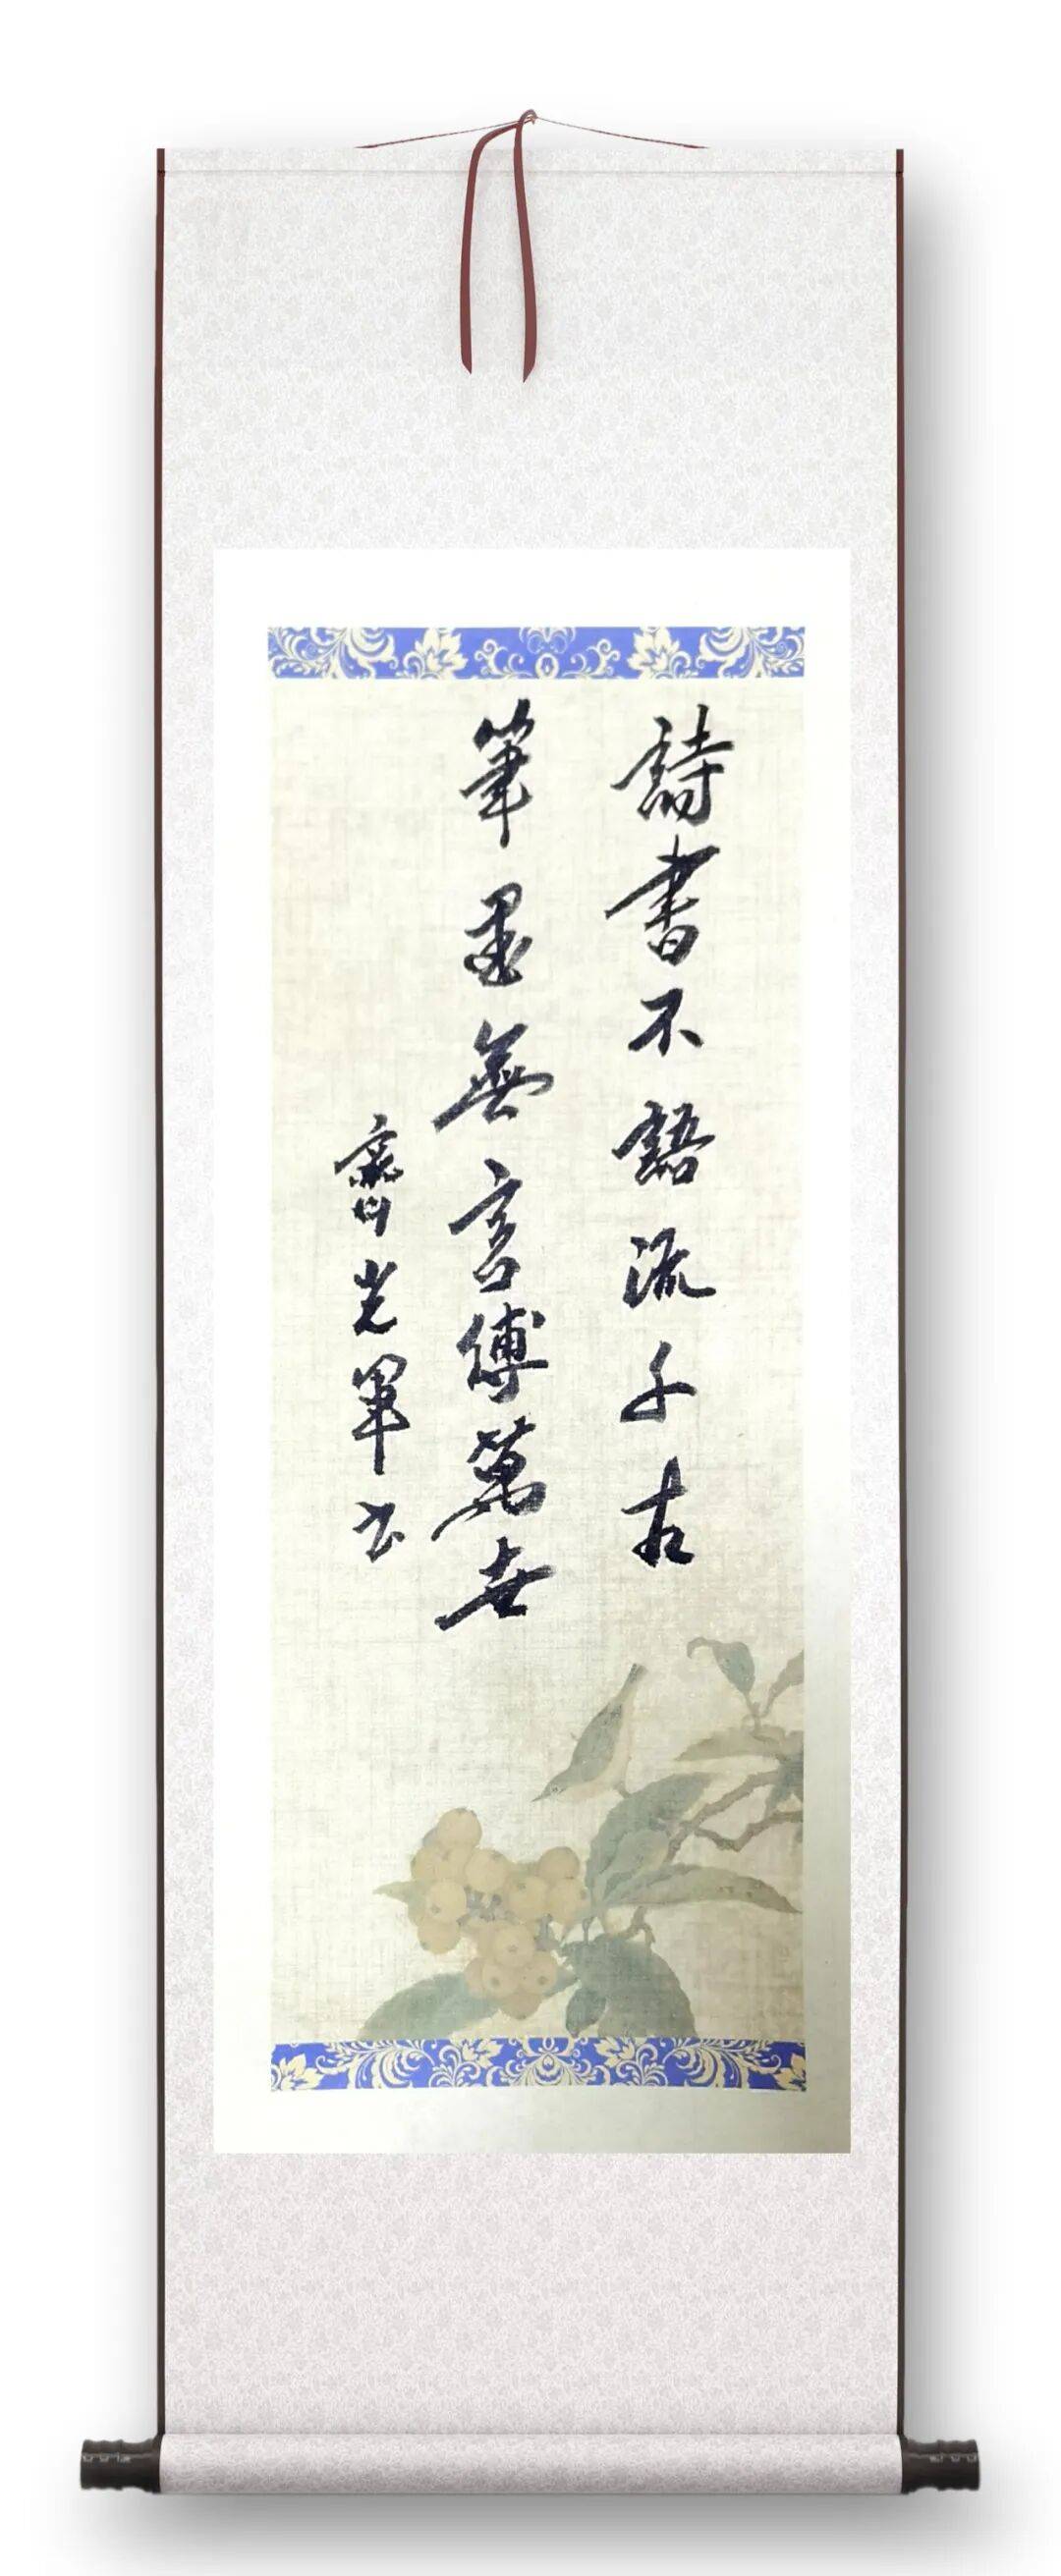 詩書不語流千古
筆墨無言傳萬世
齊光軍书